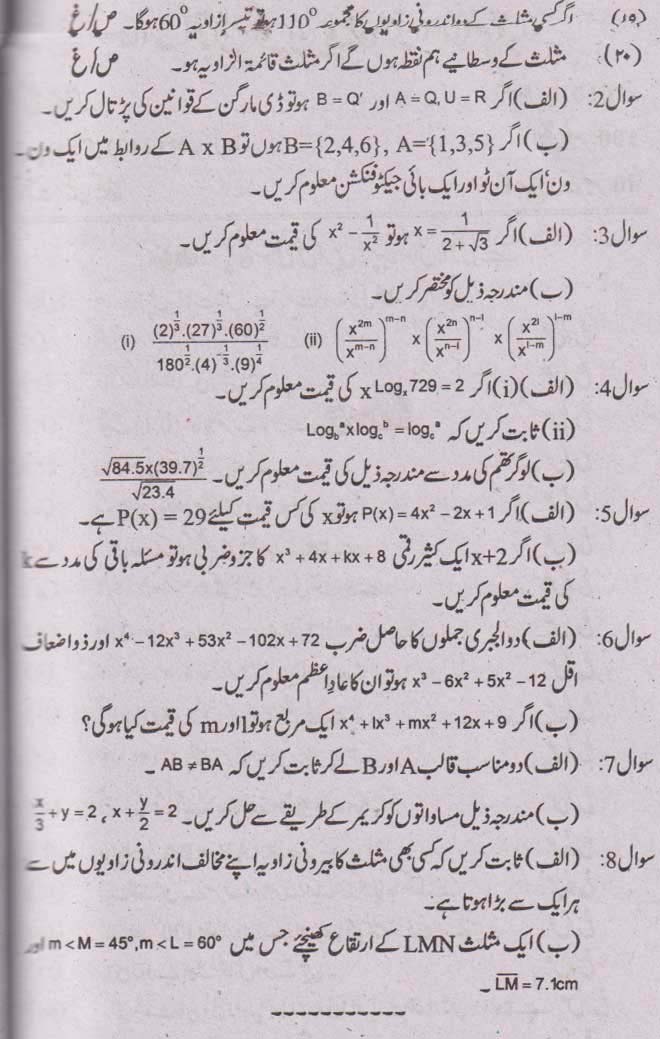 (۱۹) اگر کسی مثلث کے دو اندرونی زاویوں کا مجموعہ 110° ہے تو تیسرا زاویہ 60° ہوگا۔ ص/غ
(۲۰) مثلث کے وسطانیے ہم نقطہ ہوں گے اگر مثلث قائمۃ الزاویہ ہو۔ ص/غ
سوال 2: (الف) اگر A = Q, U = R اور B = Q′ ہو تو ڈی مارگن کے قوانین کی پڑتال کریں۔
(ب) اگر B={2,4,6}, A={1,3,5} ہوں تو A x B کے روابط میں ایک ون۔
ون، ایک آن ٹو اور ایک بائی جیکٹو فنکشن معلوم کریں۔
سوال 3: (الف) اگر x = 1/(2 + √3) ہو تو x² − 1/x² کی قیمت معلوم کریں۔
(ب) مندرجہ ذیل کو مختصر کریں۔
(i) ((2)^(1/3).(27)^(1/3).(60)^(1/2))/(180^(1/2).(4)^(-1/3).(9)^(1/4)) (ii) (x^(2m)/x^(m-n))^(m-n) x (x^(2n)/x^(n-l))^(n-l) x (x^(2l)/x^(l-m))^(l-m)
سوال 4: (الف) (i) اگر Logₓ729 = 2 x کی قیمت معلوم کریں۔
(ii) ثابت کریں کہ Log_b^a x log_c^b = log_c^a
(ب) لوگرتھم کی مدد سے مندرجہ ذیل کی قیمت معلوم کریں۔ (√84.5x(39.7)^(1/2))/√23.4
سوال 5: (الف) اگر P(x) = 4x² − 2x + 1 ہو تو x کی کس قیمت کیلئے P(x) = 29 ہے۔
(ب) اگر x+2 ایک کثیر رقمی x³ + 4x + kx + 8 کا جزو ضربی ہو تو مسئلہ باقی کی مدد سے k
کی قیمت معلوم کریں۔
سوال 6: (الف) دو الجبری جملوں کا حاصل ضرب x⁴ − 12x³ + 53x² − 102x + 72 اور ذو اضعاف
اقل x³ − 6x² + 5x² − 12 ہو تو ان کا عاد اعظم معلوم کریں۔
(ب) اگر x⁴ + lx³ + mx² + 12x + 9 ایک مربع ہو تو l اور m کی قیمت کیا ہوگی؟
سوال 7: (الف) دو مناسب قالب A اور B لے کر ثابت کریں کہ AB ≠ BA ۔
(ب) مندرجہ ذیل مساواتوں کو کریمر کے طریقے سے حل کریں۔ x + y/2 = 2 ، x/3 + y = 2
سوال 8: (الف) ثابت کریں کہ کسی بھی مثلث کا بیرونی زاویہ اپنے مخالف اندرونی زاویوں میں سے
ہر ایک سے بڑا ہوتا ہے۔
(ب) ایک مثلث LMN کے ارتفاع کھینچئے جس میں m < M = 45°, m < L = 60° اور
LM = 7.1cm ۔